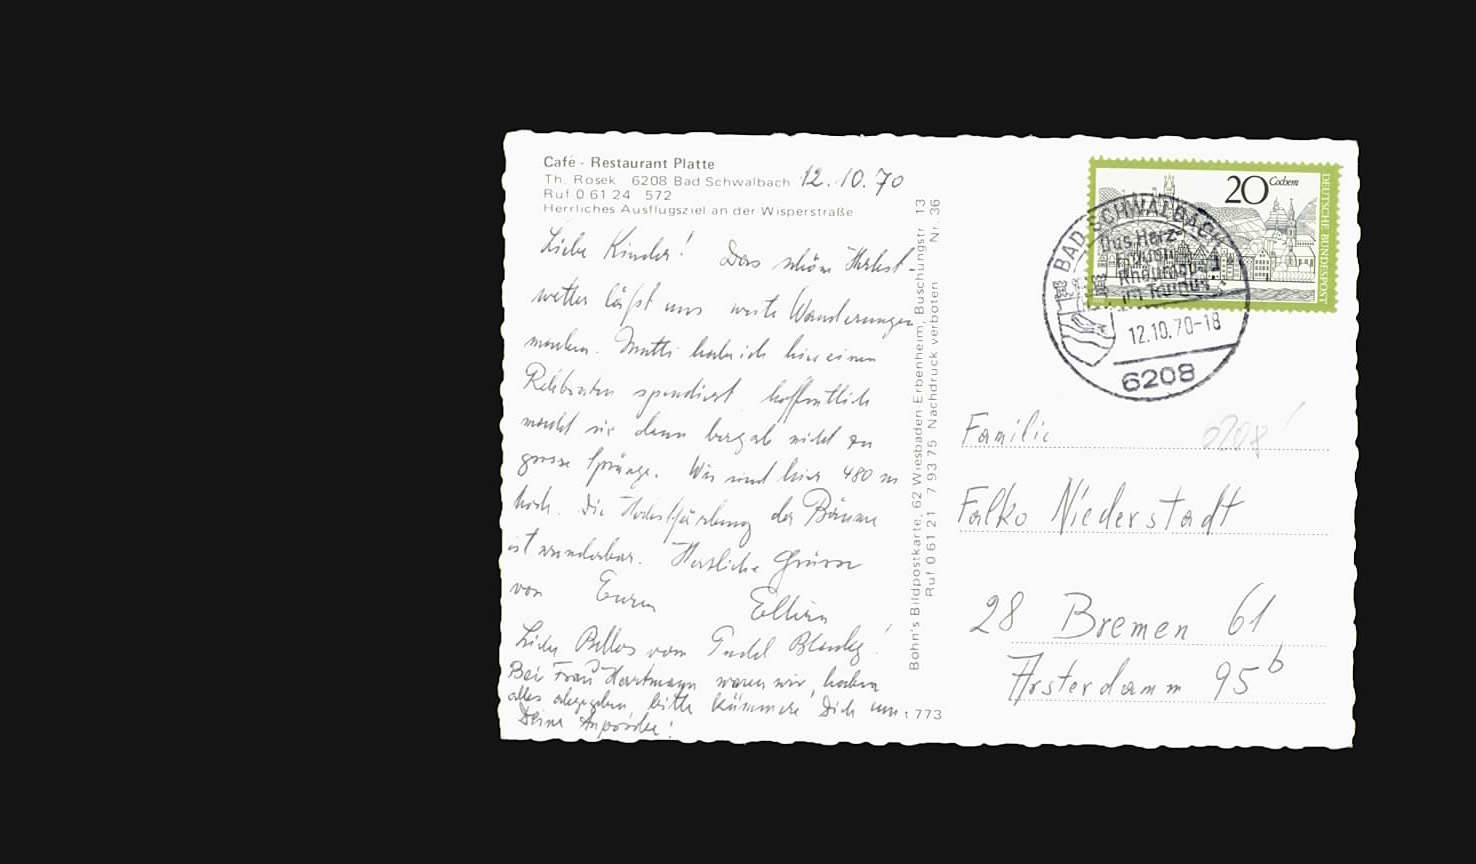 Café - Restaurant Platte
Th. Rosek 6208 Bad Schwalbach 12.10.70
Ruf 0 61 24 572
Herrliches Ausflugsziel an der Wisperstraße
Liebe Kinder! Das schöne Herbst-
wetter läßt uns weite Wanderungen
machen. Mutti habe ich hier einen
spendiert hoffentlich
macht sie dann bergab nicht zu
grosse Sprünge. Wir sind hier 480 m
hoch. Die Herbstfärbung der Bäume
ist wunderbar. Herzliche Grüsse
von Euren Eltern
Liebe vom
Bei Frau Hartmann waren wir, haben
alles abgegeben, bitte kümmere Dich um
Deine
Bohn's Bildpostkarte, 62 Wiesbaden Erbenheim, Buschungstr. 13
Ruf 0 61 21 7 93 75 Nachdruck verboten Nr. 36
t 773
20 Cochem
DEUTSCHE BUNDESPOST
BAD SCHWALBACH
Das Herz-
Frauen-
Rheumabad
im Taunus
12.10.70-18
6208
Familie
Falko Niederstadt
28 Bremen 61
Arsterdamm 95b